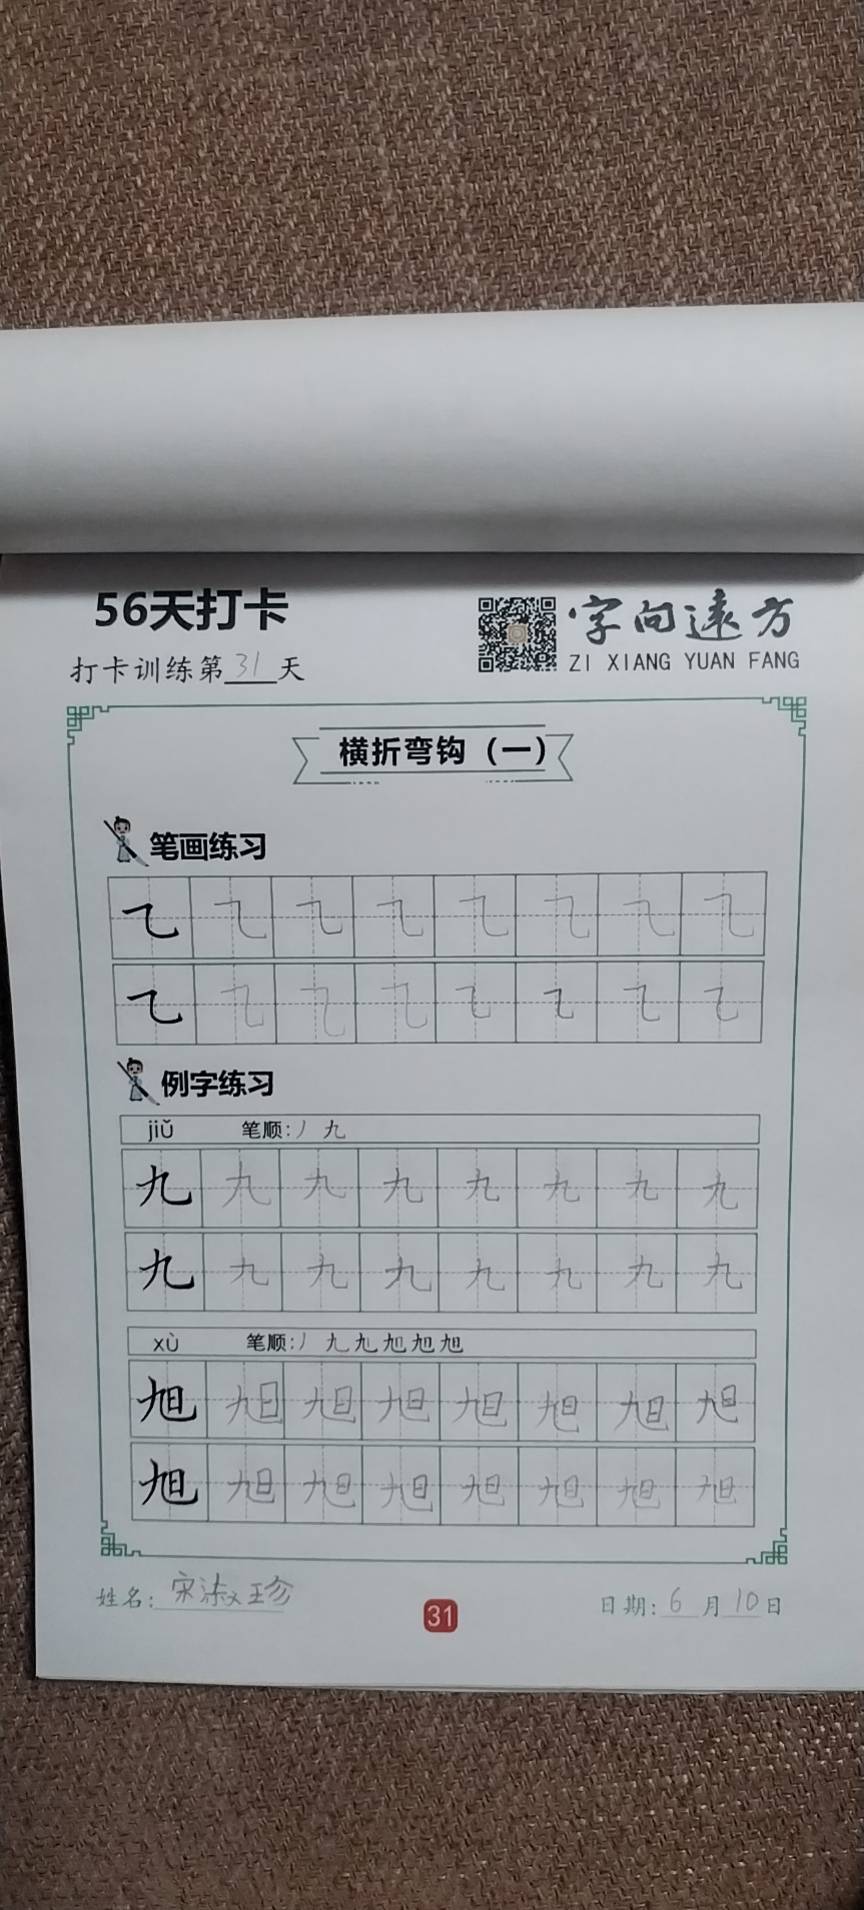 56天打卡
字向远方
打卡训练第31天
ZI XIANG YUAN FANG
横折弯钩（一）
笔画练习
㇈ ㇈ ㇈ ㇈ ㇈ ㇈ ㇈ ㇈
㇈ ㇈ ㇈ ㇈ ㇈ ㇈ ㇈ ㇈
例字练习
jiǔ 笔顺:丿 九
九 九 九 九 九 九 九 九
九 九 九 九 九 九 九 九
xù 笔顺:丿 九 旭 旭 旭 旭
旭 旭 旭 旭 旭 旭 旭 旭
旭 旭 旭 旭 旭 旭 旭 旭
姓名:宋淑珍
31
日期:6月10日